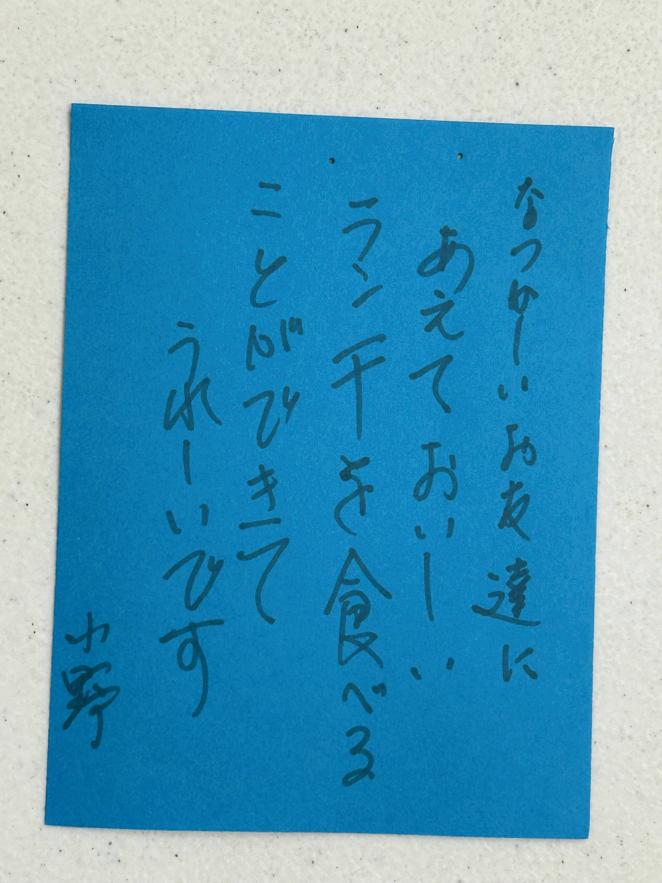 なつかしいお友達に
あえておいしい
ランチを食べる
ことができて
うれしいです
小野